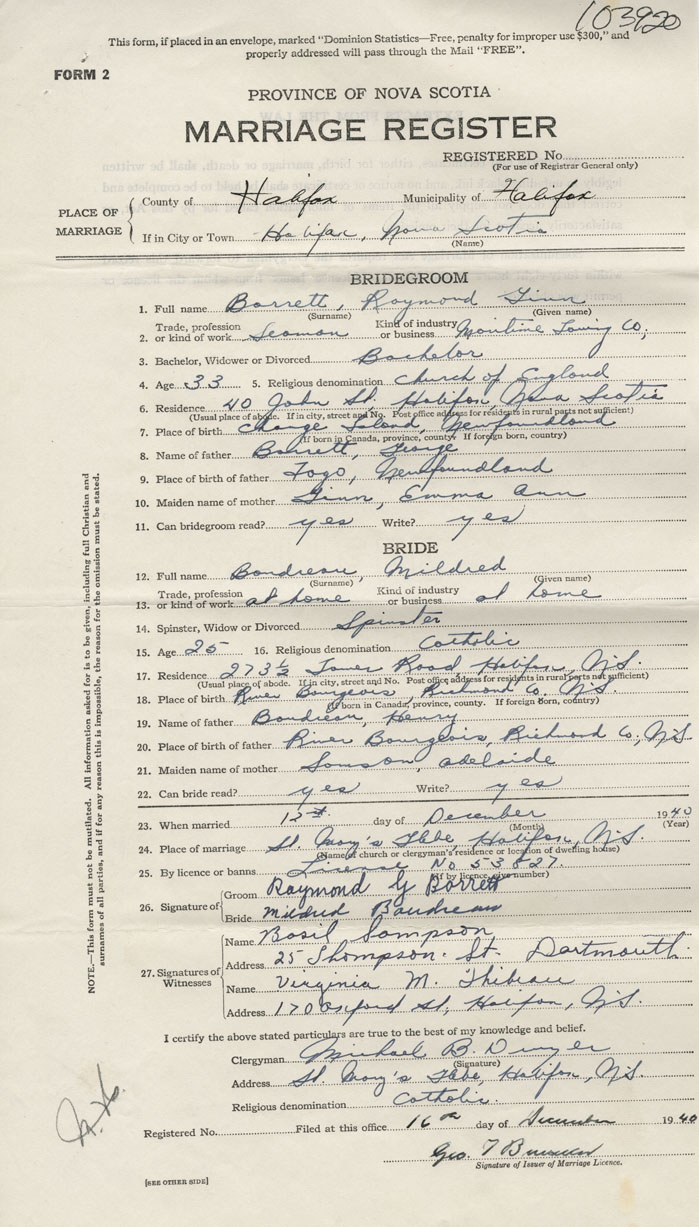 103920
This form, if placed in an envelope, marked "Dominion Statistics—Free, penalty for improper use $300," and
properly addressed will pass through the Mail "FREE".
FORM 2
PROVINCE OF NOVA SCOTIA
MARRIAGE REGISTER
REGISTERED No.
(For use of Registrar General only)
PLACE OF MARRIAGE
County of Halifax Municipality of Halifax
If in City or Town Halifax, Nova Scotia
(Name)
BRIDEGROOM
1. Full name Barrett, Raymond Ginn
(Surname) (Given name)
2. Trade, profession or kind of work Seaman Kind of industry or business Maritime Towing Co,
3. Bachelor, Widower or Divorced Bachelor
4. Age 33 5. Religious denomination Church of England
6. Residence 40 John St, Halifax, Nova Scotia
(Usual place of abode. If in city, street and No. Post office address for residents in rural parts not sufficient)
7. Place of birth Change Island, Newfoundland
(If born in Canada, province, county. If foreign born, country)
8. Name of father Barrett, George
9. Place of birth of father Fogo, Newfoundland
10. Maiden name of mother Ginn, Emma Ann
11. Can bridegroom read? yes Write? yes
BRIDE
12. Full name Boudreau, Mildred
(Surname) (Given name)
13. Trade, profession or kind of work at home Kind of industry or business at home
14. Spinster, Widow or Divorced Spinster
15. Age 25 16. Religious denomination Catholic
17. Residence 273½ Tower Road Halifax, N.S.
(Usual place of abode. If in city, street and No. Post office address for residents in rural parts not sufficient)
18. Place of birth River Bourgeois, Richmond Co. N.S.
(If born in Canada, province, county. If foreign born, country)
19. Name of father Boudreau, Henry
20. Place of birth of father River Bourgeois, Richmond Co, N.S.
21. Maiden name of mother Samson, Adelaide
22. Can bride read? yes Write? yes
23. When married 12th day of December 1940
(Month) (Year)
24. Place of marriage St. Mary's Glebe, Halifax, N.S.
(Name of church or clergyman's residence or location of dwelling house)
25. By licence or banns License No 53827.
(If by licence, give number)
26. Signature of
Groom Raymond G Barrett
Bride Mildred Boudreau
27. Signatures of Witnesses
Name Basil Sampson
Address 25 Thompson. St. Dartmouth.
Name Virginia M. Thibeau
Address 170 Oxford St, Halifax, N.S.
I certify the above stated particulars are true to the best of my knowledge and belief.
Clergyman Michael B. Dwyer
(Signature)
Address St. Mary's Glebe, Halifax, N.S.
Religious denomination Catholic.
Registered No. Filed at this office 16th day of December 1940
Geo. T
Signature of Issuer of Marriage Licence.
[SEE OTHER SIDE]
NOTE.—This form must not be mutilated. All information asked for is to be given, including full Christian and
surnames of all parties, and if for any reason this is impossible, the reason for the omission must be stated.